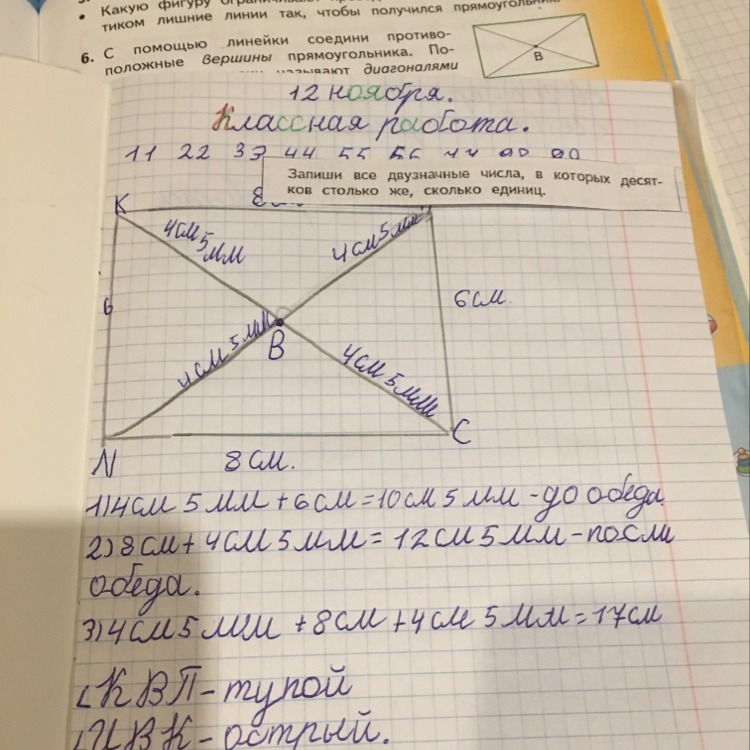 Какую фигуру
тиком лишние линии так, чтобы получился прямоугольник
6. С помощью линейки соедини противо-
положные вершины прямоугольника. По-
называют диагоналями
В
12 ноября.
Классная работа.
11 22 33 44 55
Запиши все двузначные числа, в которых десят-
ков столько же, сколько единиц.
К 8
4см 5мм 4см 5мм
6 6см.
В
4см 5мм 4см 5мм
N С
8см.
1) 4см 5мм + 6см = 10см 5мм - до обеда
2) 8см + 4см 5мм = 12см 5мм - посли
обеда.
3) 4см 5мм + 8см + 4см 5мм = 17см
∠КВП - тупой
∠ПВК - острый.